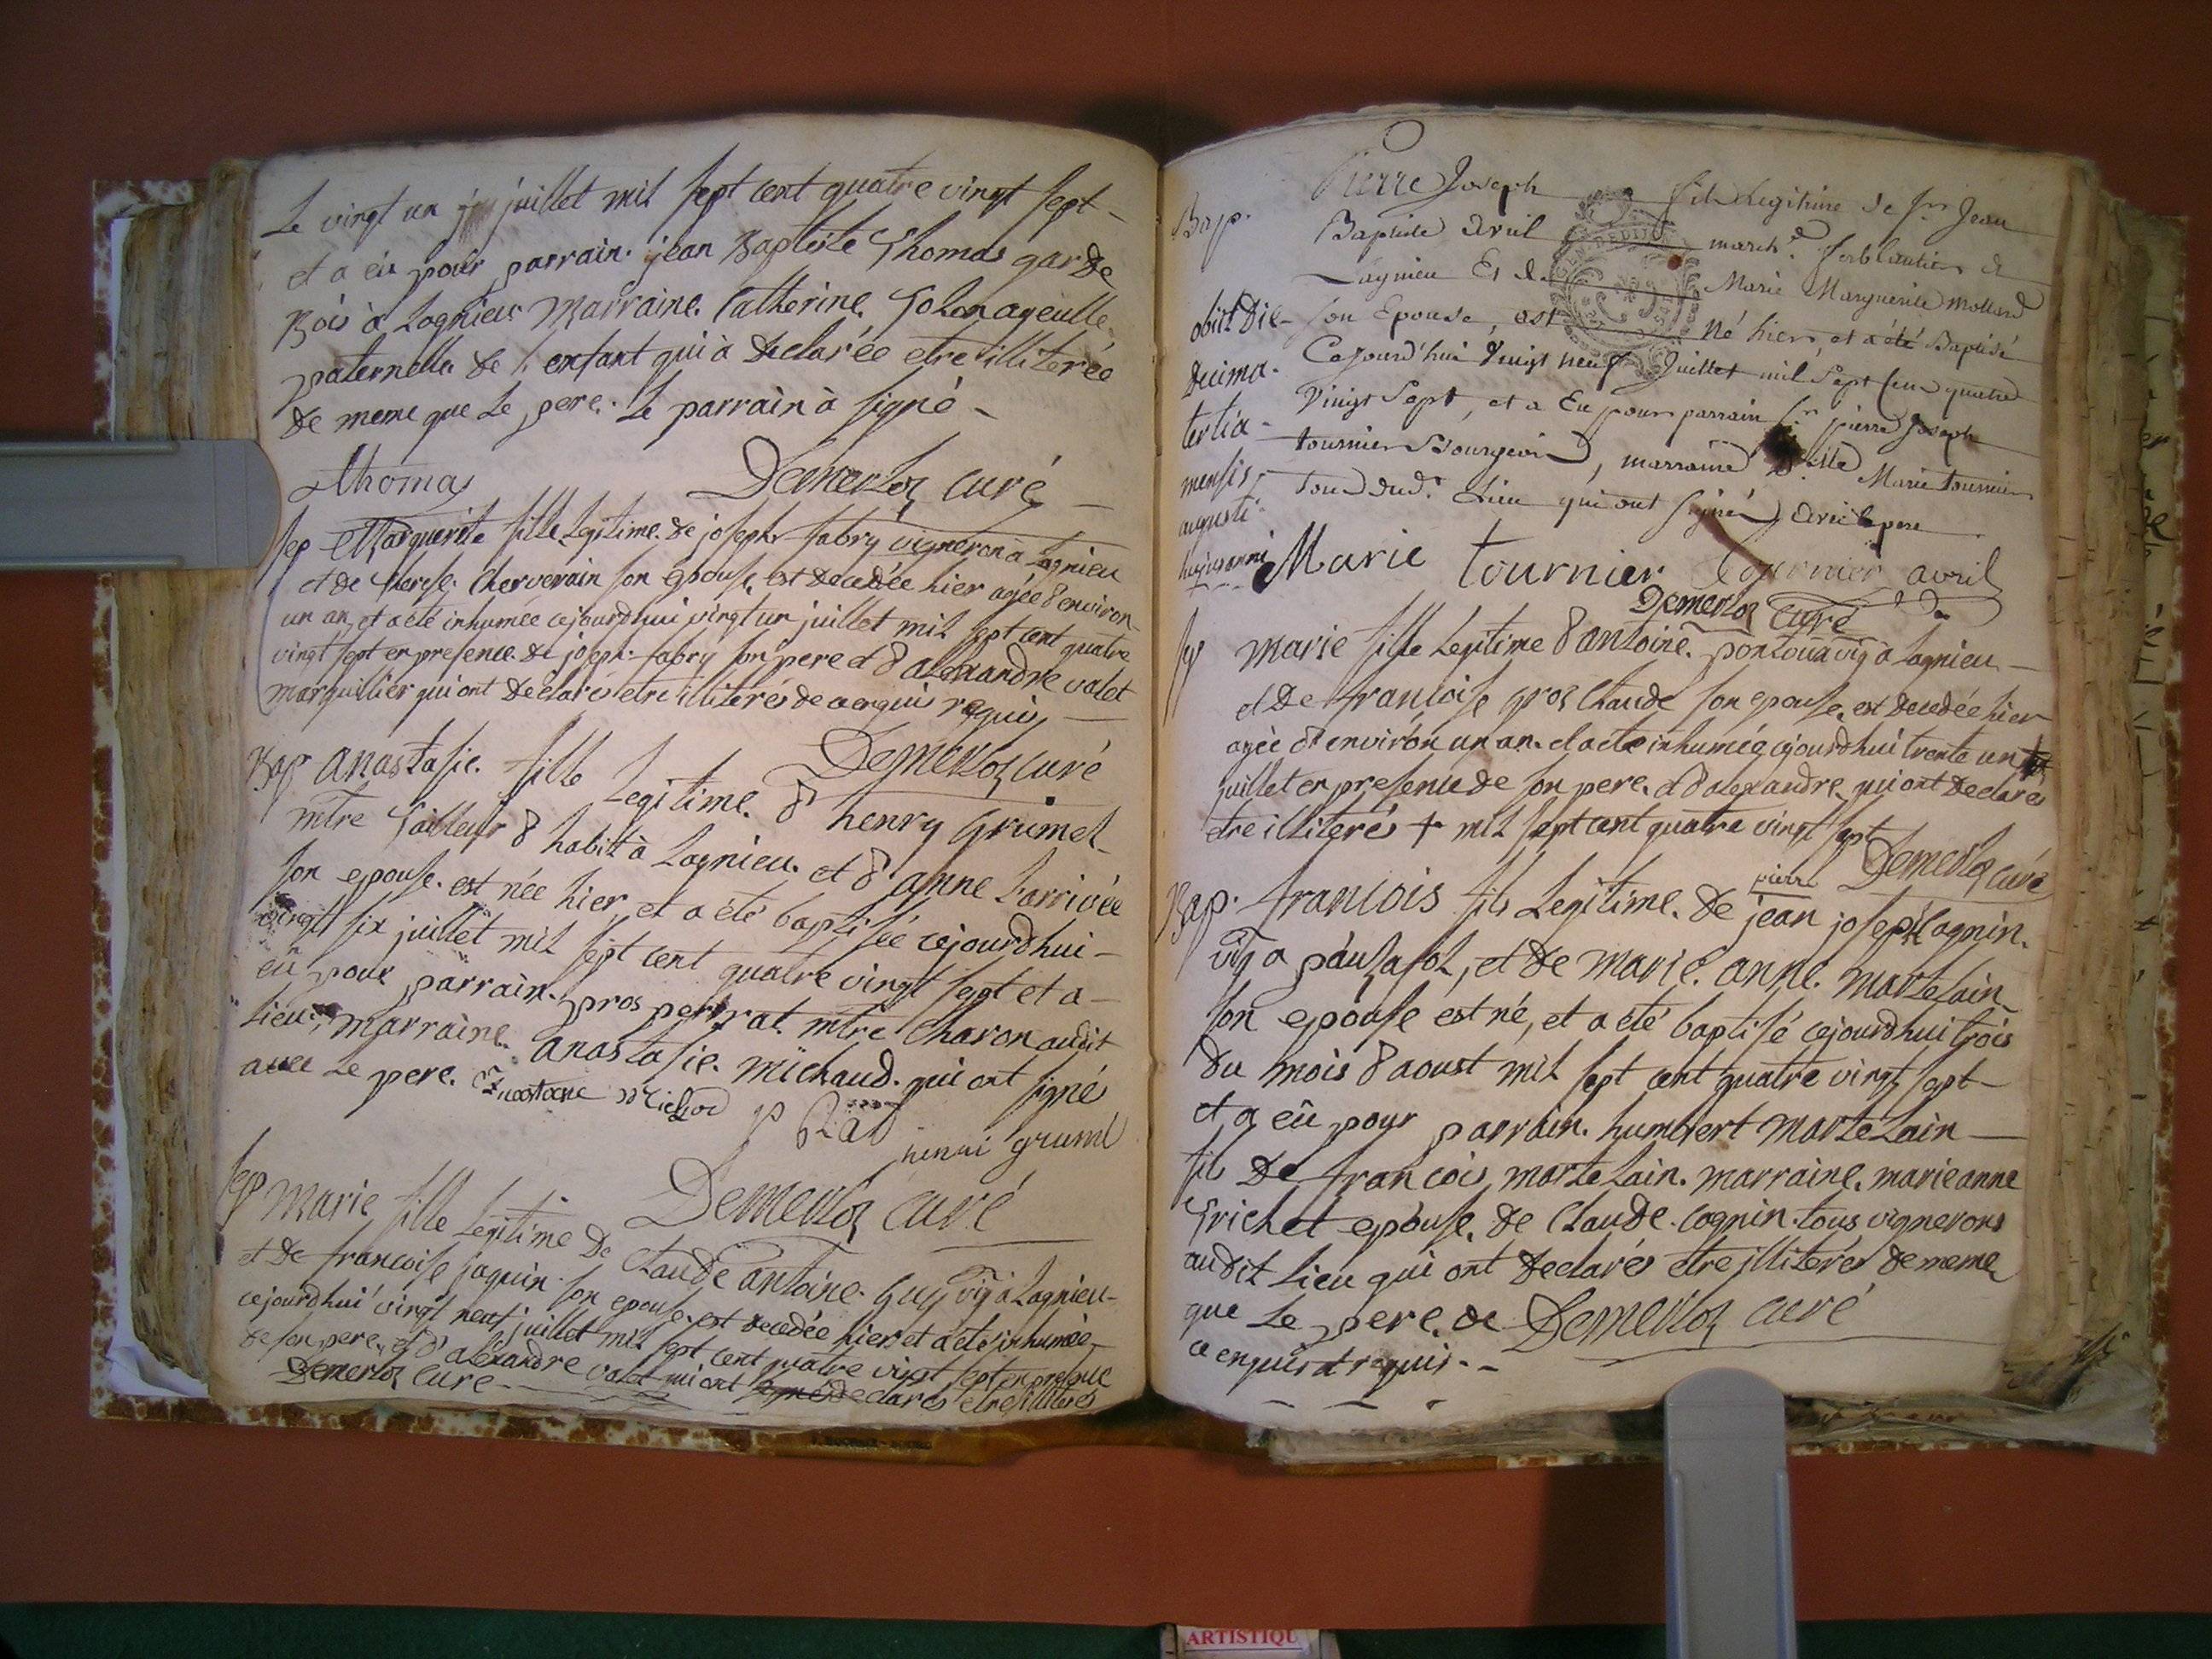 Le vingt un juillet mil sept cent quatre vingt sept
et a eû pour parrain. jean Baptiste Thomas garde
Bois à Lagnieu Marraine. Catherine ayeulle
paternelle de l'enfant qui à declarée etre illiterée
de meme que le pere. Le parrain à signé
thomas Demerloz curé
Sep Marguerite fille Legitime de joseph fabry vigneron à Lagnieu
et de therese Cherverain son epouse est decedée hier agée d'environ
un an, et a été inhumée cejourdhui vingt un juillet mil sept cent quatre
vingt sept en presence de joseph fabry son pere et d'alexandre valet
marguillier qui ont declarés etre illiterés de ce enquis requis
Demerloz curé
Bap anastasie. fille Legitime. d' henry Grumel
mtre tailleur d'habit à Lagnieu. et d'anne Larrivée
son epouse. est née hier, et a été baptisée cejourdhui
vingt six juillet mil sept cent quatre vingt sept et a
eû pour parrain. pros perrat mtre Charon audit
Lieu, marraine. anastasie. michaud. qui ont signés
avec Le pere.
henri grumel
Demerloz curé
Sep Marie fille Legitime De Claude antoine. Guy vig à Lagnieu
et De francoise jaquin son epouse. est decedée hier et a été inhumée
cejourdhui vingt neuf juillet mil sept cent quatre vingt sept en presence
de son pere, et d'alexandre valet qui ont signés declarés etre illiterés
Demerloz curé
Bap. Pierre Joseph fils Legitime de sr Jean
Baptiste Avril march.d ferblantier de
Lagnieu Et de Marie Marguerite Mollard
son Epouse, est Né hier, et a été Baptisé
Cejourd'hui Vingt neuf Juillet mil Sept Cent quatre
Vingt Sept, et a Eu pour parrain sr pierre Joseph
tournier Bourgeois, marraine Dlle Marie tournier
tous dud.t Lieu qui ont signé avec le pere
obiit Die
decima
tertia
mensis
augusti
hujus anni
Marie tournier Tournier avril
Demerloz curé
Sep marie fille Legitime d'antoine. vig à Lagnieu
et De francoise gros Claude son epouse. est decedée hier
agée d'environ un an. et a été inhumée cejourdhui trente un
juillet en presence de son pere. et d'alexandre qui ont declarés
etre illiterés + mil sept cent quatre vingt sept
Demerloz curé
pierre
Bap. francois fils Legitime. de jean joseph Cognin.
vig a et de marie. anne. martelain
son epouse est né, et a été baptisé cejourdhui trois
du mois d'aoust mil sept cent quatre vingt sept
et a eû pour parrain. humbert martelain
fils De francois martelain. marraine. marie anne
trichet epouse. de Claude. Cognin. tous vignerons
audit Lieu qui ont declarés etre illiterés de meme
que Le pere. de Demerloz curé
ce enquis et requis.
ARTISTIQU